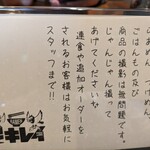 らぁめん、つけめん、
ごはんもの及び
商品の撮影は無問題です。
じゃんじゃん撮って
あげてくださいな
連食や追加オーダーを
されるお客様はお気軽に
スタッフまで!!
キレー